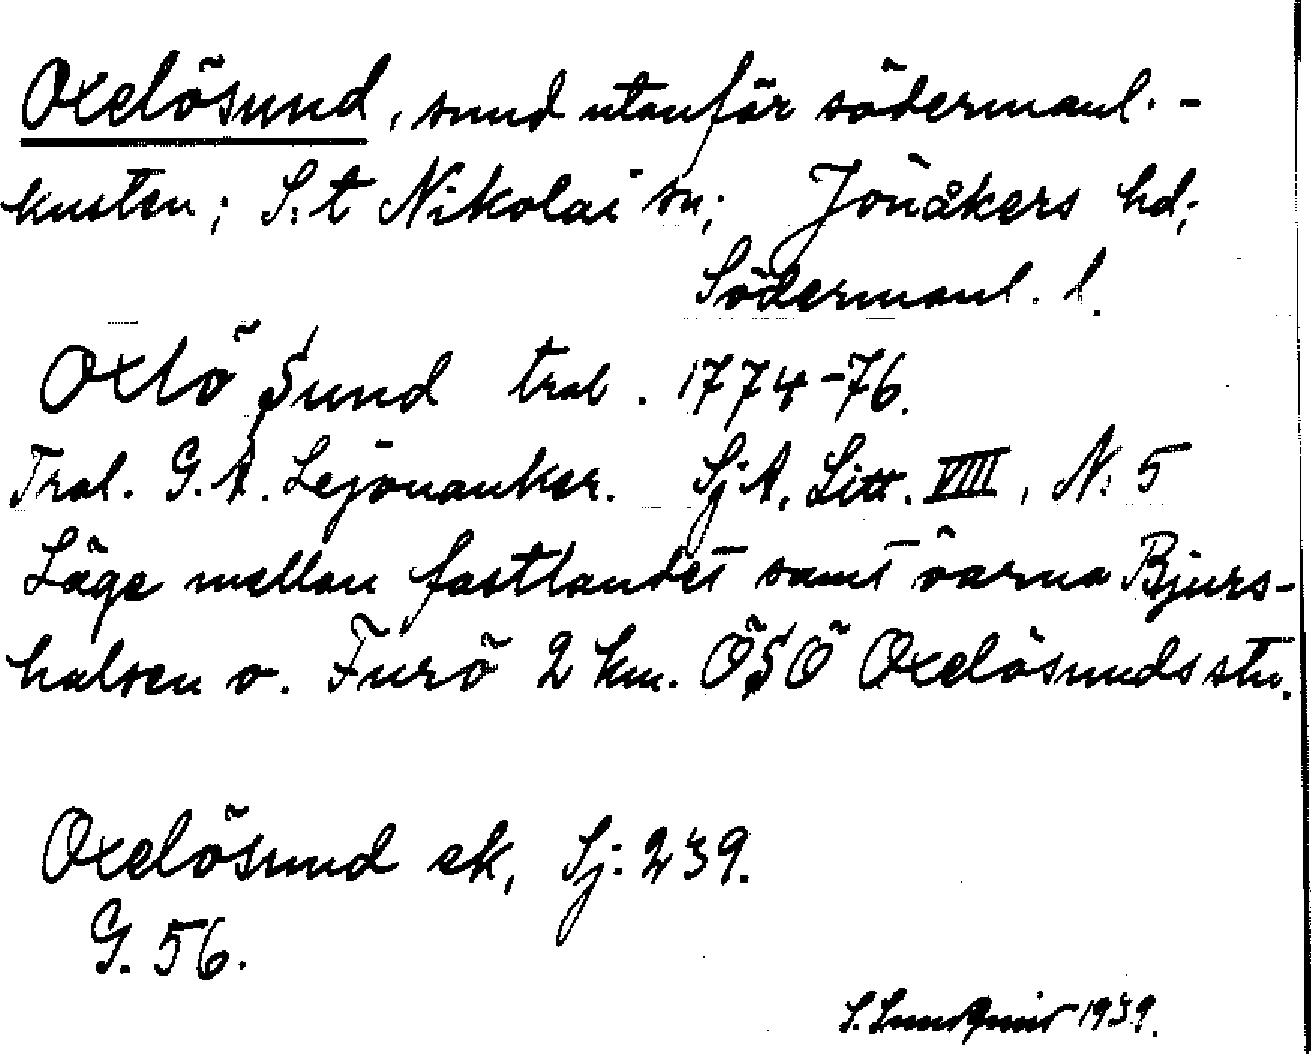 Oxelösund, sund utanför södermanl.-
kusten; S:t Nikolai sn; Jönåkers hd;
Södermanl. l.
Oxlö Sund tral. 1774-76.
Tral. G. A. Lejonanker. SjA. Litt. VIII, N: 5
Läge mellan fastlandet samt öarna Bjurs-
halsen o. Furö 2 km. ÖSÖ Oxelösunds stn.
Oxelösund ek, Sj: 239.
G. 56.
S. Lundqvist 1939.